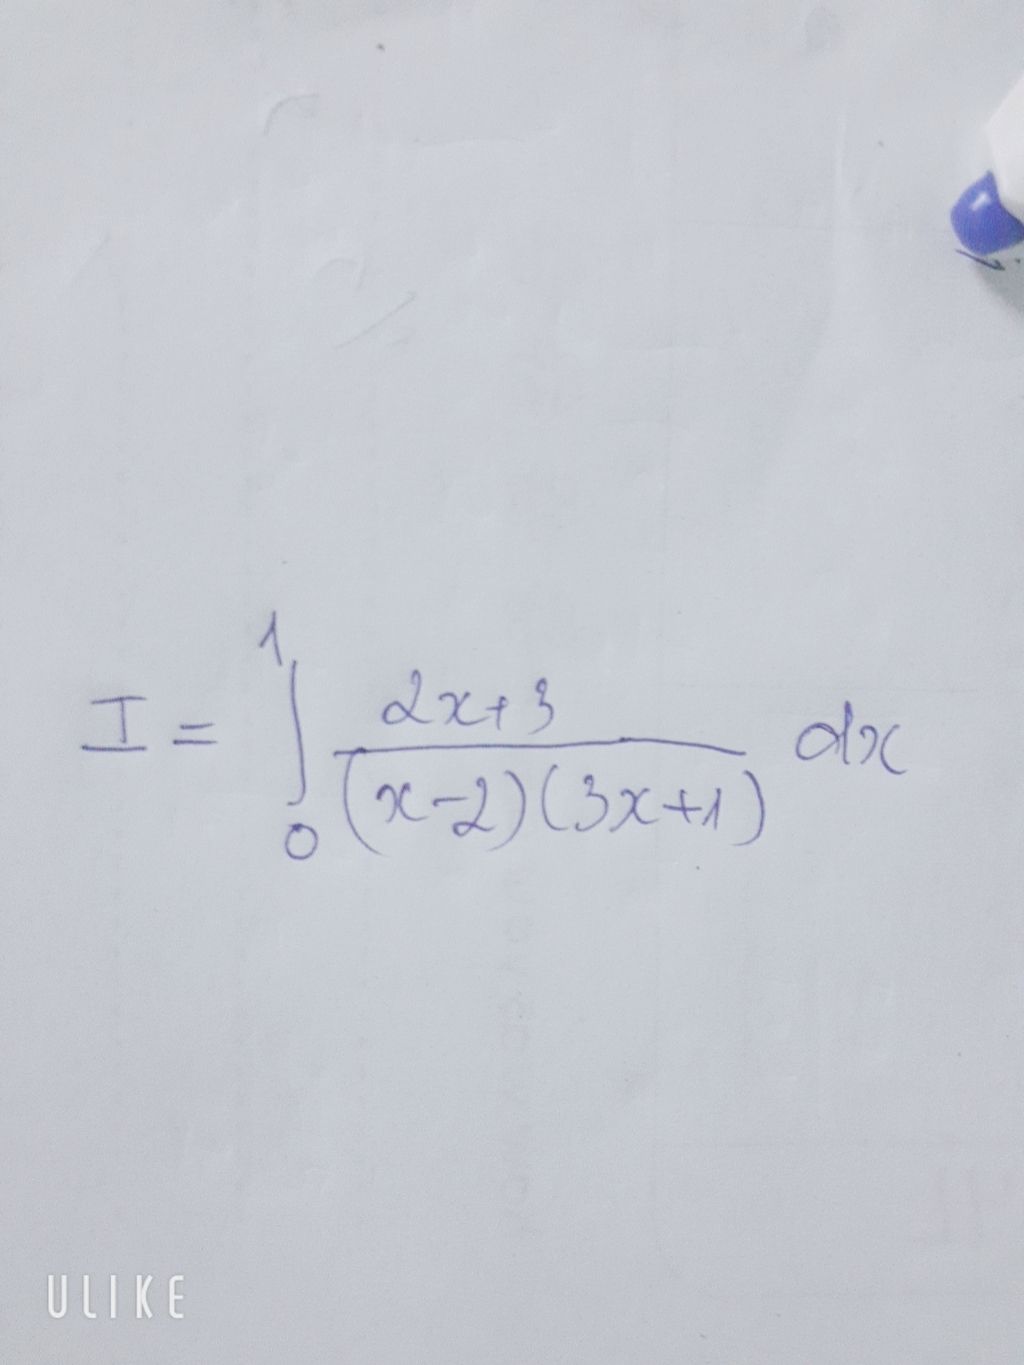 I = ∫₀¹ (2x+3)/((x-2)(3x+1)) dx
ULIKE